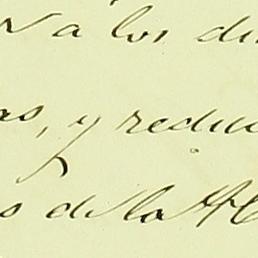 a los di
as, y reduc
s de la H